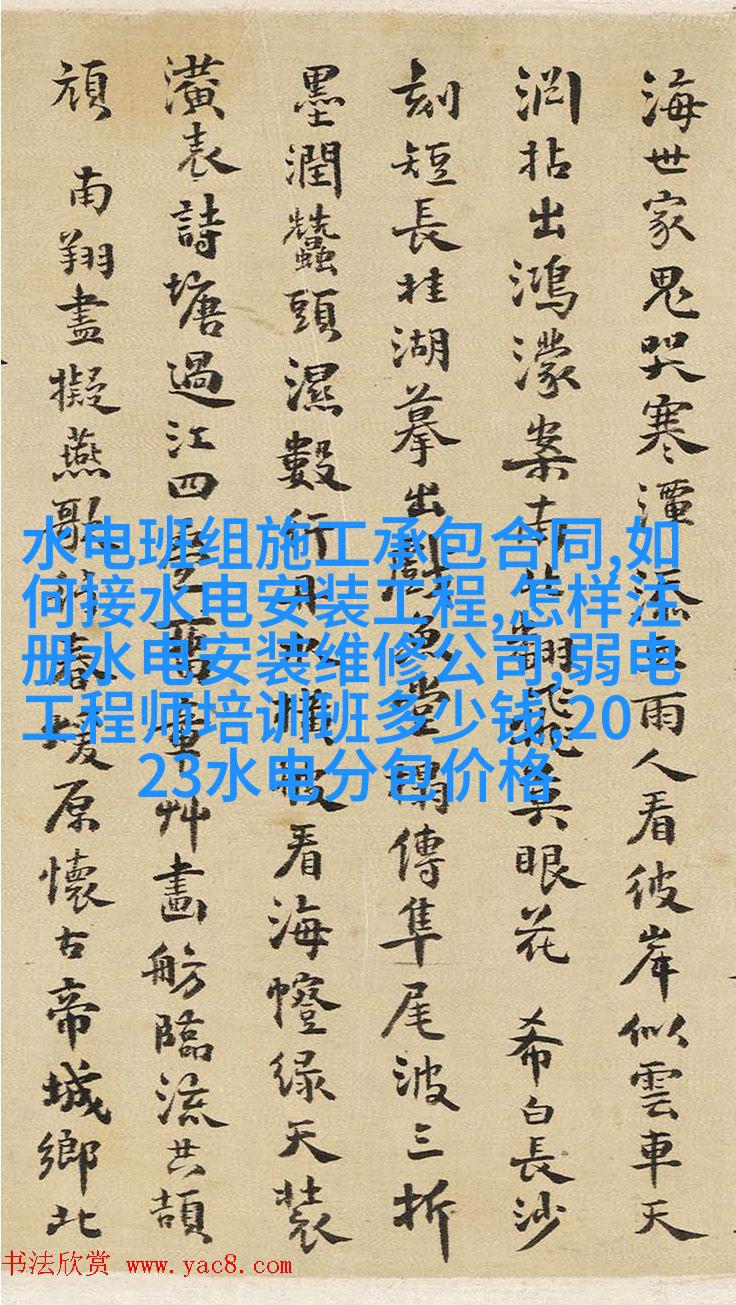 海世家鬼哭寒潭添雨人看彼岸似雲車天
淵拈出鴻濛案翻飛莫眼花 希白長沙
刻短長桂湖摹出戲魚堂傳隼尾波三折
墨潤蠶頭濕數行看海幢绿天裝
潢表詩塘過江四艸畫舫臨流共頡
頏 南翔盡擬燕歌暖原懷古帝城鄉北
水电班组施工承包合同,如
何接水电安装工程,怎样注
册水电安装维修公司,弱电
工程师培训班多少钱,20
23水电分包价格
书法欣赏 www.yac8.com